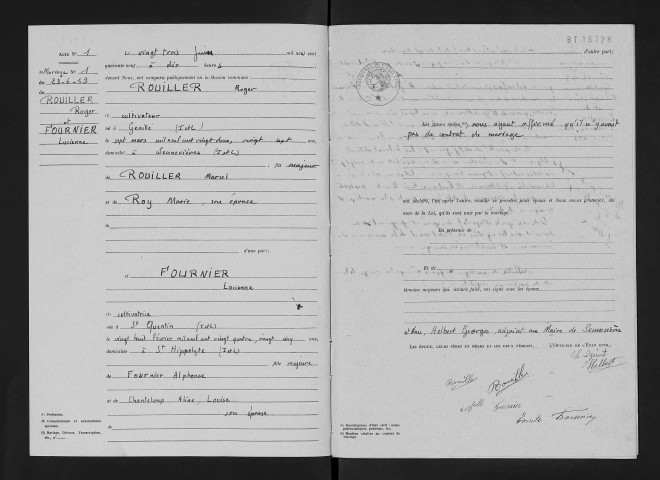 Acte N° 1
Mariage N° 1
du 23-6-49
ROUILLER
Roger
et
FOURNIER
Lucienne
Le vingt trois Juin mil neuf cent
quarante neuf à dix heures
devant Nous, ont comparu publiquement en la Maison commune
ROUILLER Roger
(1) cultivateur
né à Genillé (I&L)
le sept mars mil neuf cent vingt deux, vingt sept ans,
domicilié à Sennevières (I&L)
fils majeur
de ROUILLER Marcel
et de Roy Marie, son épouse
d'une part;
et FOURNIER
Lucienne
(1) cultivatrice
née à St Quentin (I&L)
le vingt huit février mil neuf cent vingt quatre, vingt cinq ans,
domiciliée à St Hippolyte (I&L)
fille majeure
de Fournier Alphonse
et de Chanteloup Alice, Louise
son épouse
(1) Profession.
(3) Mariage, Divorce, Transcription, etc., n°
BT 18728
d'autre part;
Les futurs époux nous ayant affirmé qu'il n'y aurait
pas de contrat de mariage
ont déclaré, l'un après l'autre, vouloir se prendre pour époux et Nous avons prononcé, au
nom de la Loi, qu'ils sont unis par le mariage.
En présence de
Et de
témoins majeurs qui, lecture faite, ont signé avec les époux
et Nous, Helbert Georges, adjoint au Maire de Sennevières
LES ÉPOUX, LEURS PÈRES ET MÈRES ET LES DEUX TÉMOINS, L'OFFICIER DE L'ÉTAT CIVIL,
L'adjoint
Helbert
Rouiller
Rouiller
Fournier